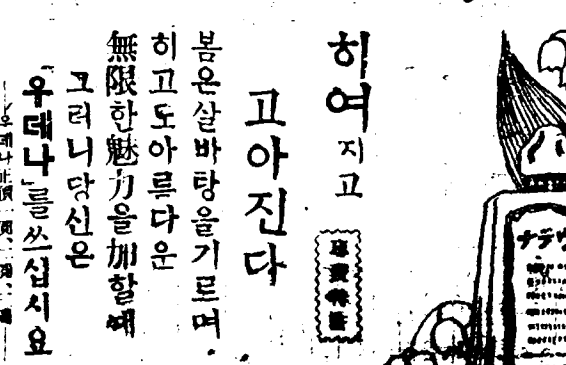 히여지고
고아진다
봄은살바탕을기르며
히고도아름다운
無限한魅力을加할때
그러니당신은
「우데나」를쓰십시요
우데나
ナテウ